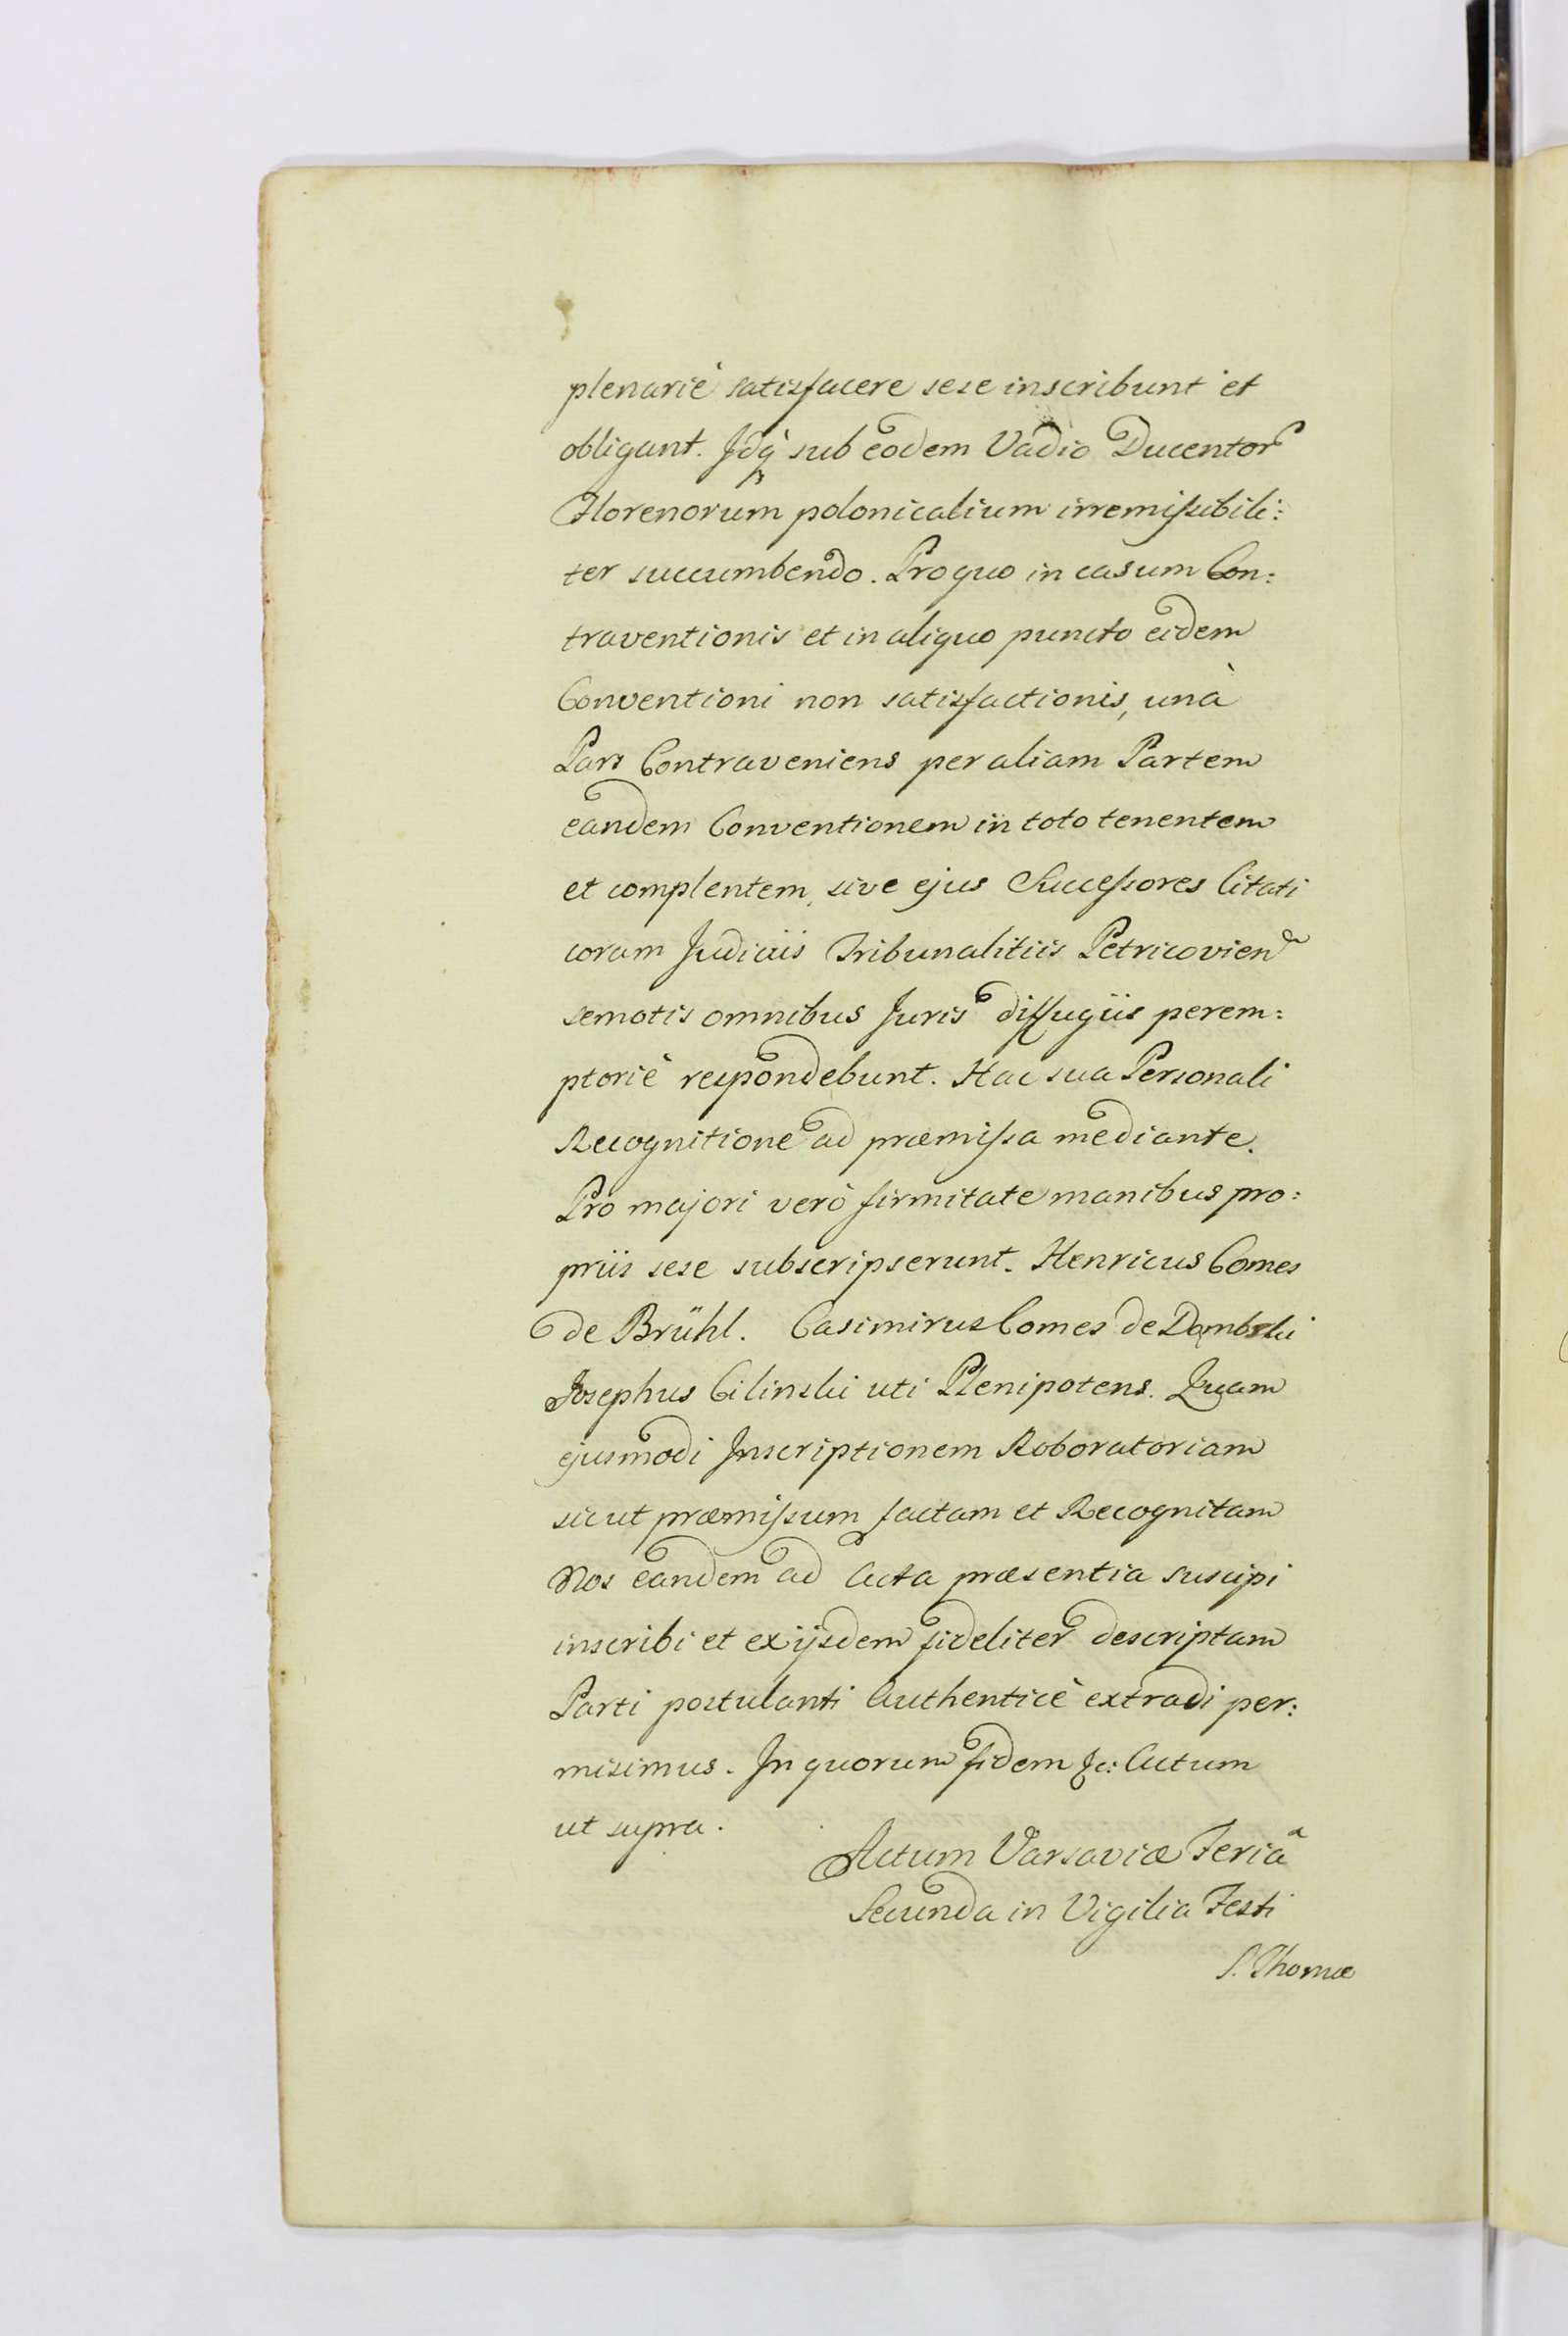 plenariè satisfacere sese inscribunt et
obligant. Idq̀ sub eodem Vadio Ducentor
Florenorum polonicalium irremissibili:
ter succumbendo. Pro quo in casum Con:
traventionis et in aliquo puncto eidem
Conventioni non satisfactionis, unà
Pars Contraveniens per aliam Partem
eandem Conventionem in toto tenentem
et complentem, sive ejus Successores Citati
coram Judiciis Tribunalitiis Petricovien
semotis omnibus Juris diffugiis perem:
ptoriè respondebunt. Hac sua Personali
Recognitione ad præmissa mediante.
Pro majori verò firmitate manibus pro:
priis sese subscripserunt. Henricus Comes
de Brühl. Casimirus Comes de Dombski
Josephus Cilinski uti Plenipotens. Quam
ejusmodi Inscriptionem Roboratoriam
sicut præmissum factam et Recognitam
Nos eandem ad Acta præsentia suscipi
inscribi et ex ijsdem fideliter descriptam
Parti postulanti Authenticè extradi per:
misimus. In quorum fidem &c: Actum
ut supra.
Actum Varsaviæ Feriâ
Secunda in Vigilia Festi
S. Thomæ